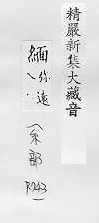 精嚴新集大藏音
緬
弥遠
〈糸部
P.243〉